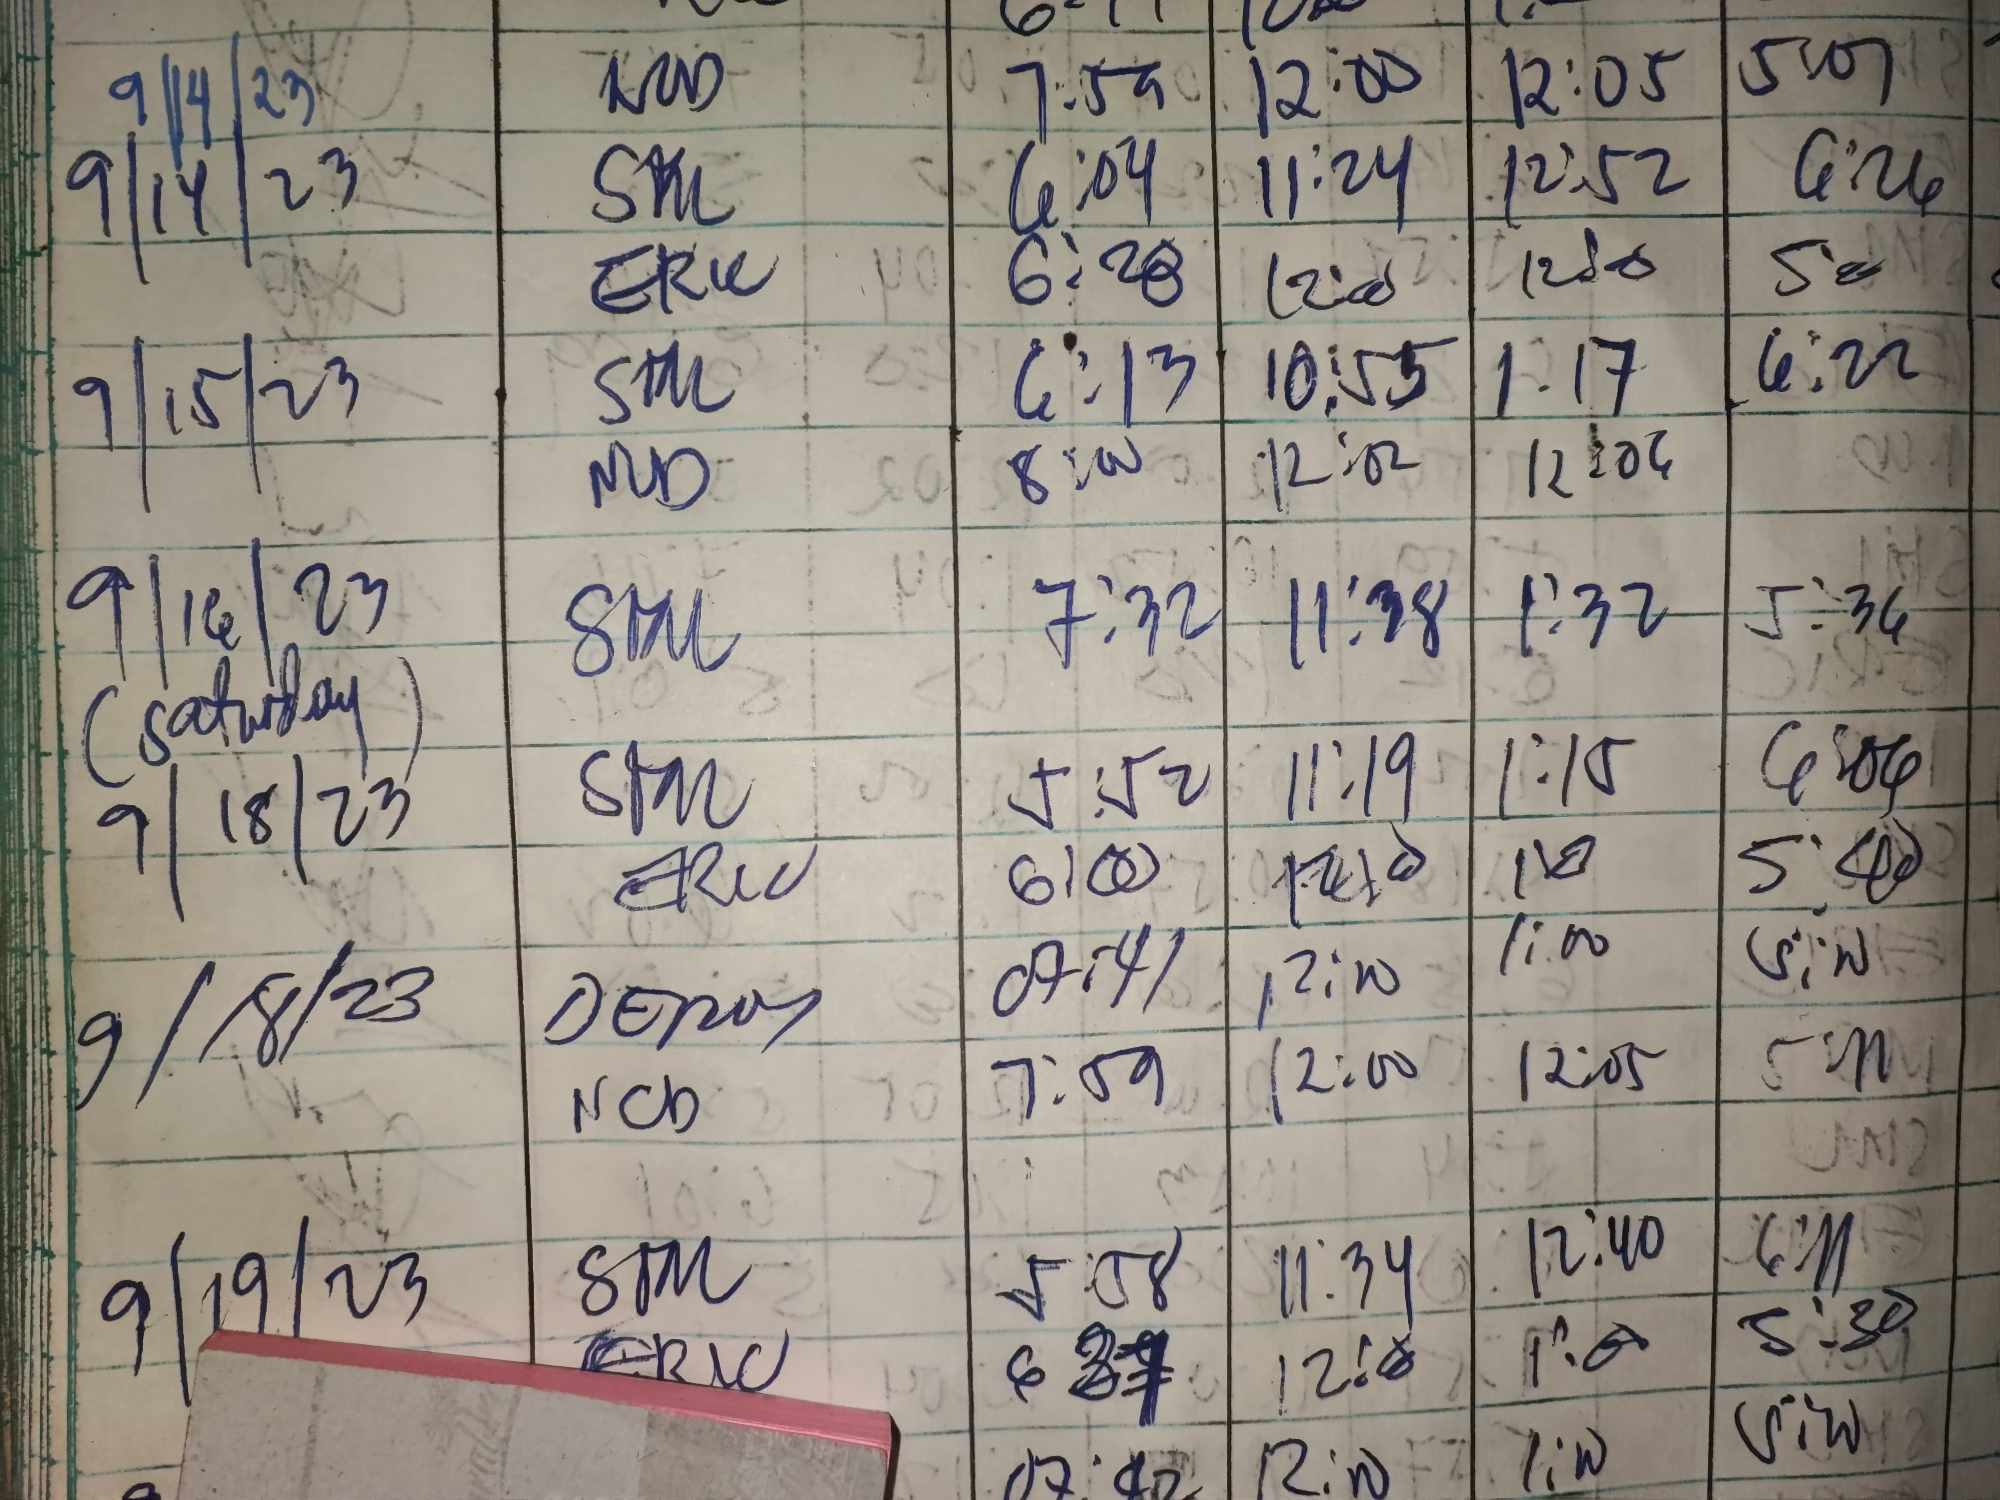 9/14/23 NCD 7:59 12:00 12:05 5:07
9/14/23 SML 6:04 11:24 12:52 6:26
ERIC 6:28 12:00 12:00 5:00
9/15/23 SML 6:13 10:55 1:17 6:22
NCD 8:00 12:02 12:06
9/16/23 SML 7:32 11:38 1:32 5:36
(Saturday)
9/18/23 SML 5:52 11:19 1:15 6:06
ERIC 6:00 1:00
9/18/23 07:41 12:00 1:00 5:00
NCD 7:59 12:00 12:05 5:11
9/19/23 SML 5:58 11:34 12:40 6:11
ERIC 12:00 1:00 5:30
12:00 1:00 5:00